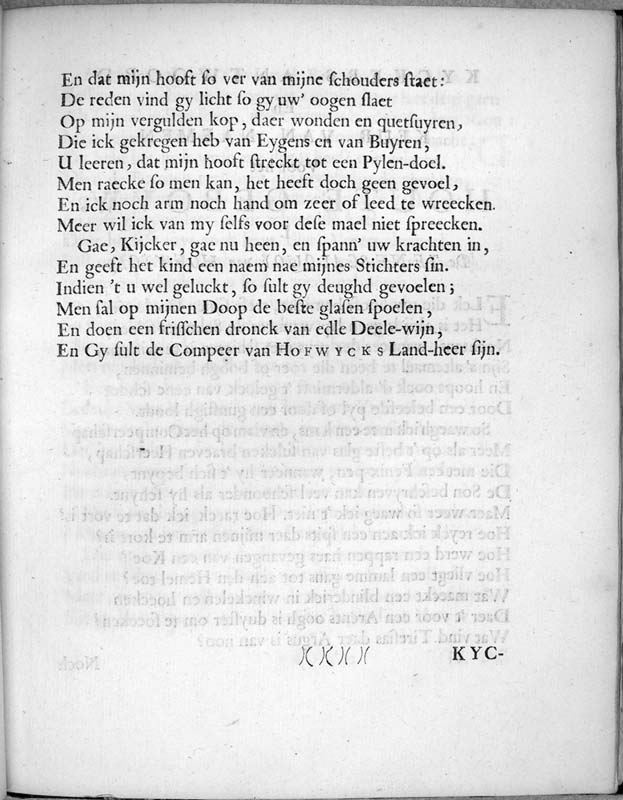 En dat mijn hooft ſo ver van mijne ſchouders ſtaet:
De reden vind gy licht ſo gy uw' oogen ſlaet
Op mijn vergulden kop, daer wonden en quetſuyren,
Die ick gekregen heb van Eygens en van Buyren,
U leeren, dat mijn hooft ſtreckt tot een Pylen-doel.
Men raecke ſo men kan, het heeft doch geen gevoel,
En ick noch arm noch hand om zeer of leed te wreecken.
Meer wil ick van my ſelfs voor deſe mael niet ſpreecken.
Gae, Kijcker, gae nu heen, en ſpann' uw krachten in,
En geeft het kind een naem nae mijnes Stichters ſin.
Indien 't u wel geluckt, ſo ſult gy deughd gevoelen;
Men ſal op mijnen Doop de beſte glaſen ſpoelen,
En doen een friſſchen dronck van edle Deele-wijn,
En Gy ſult de Compeer van HOFWYCKS Land-heer ſijn.
)( )( )( )( KYC-